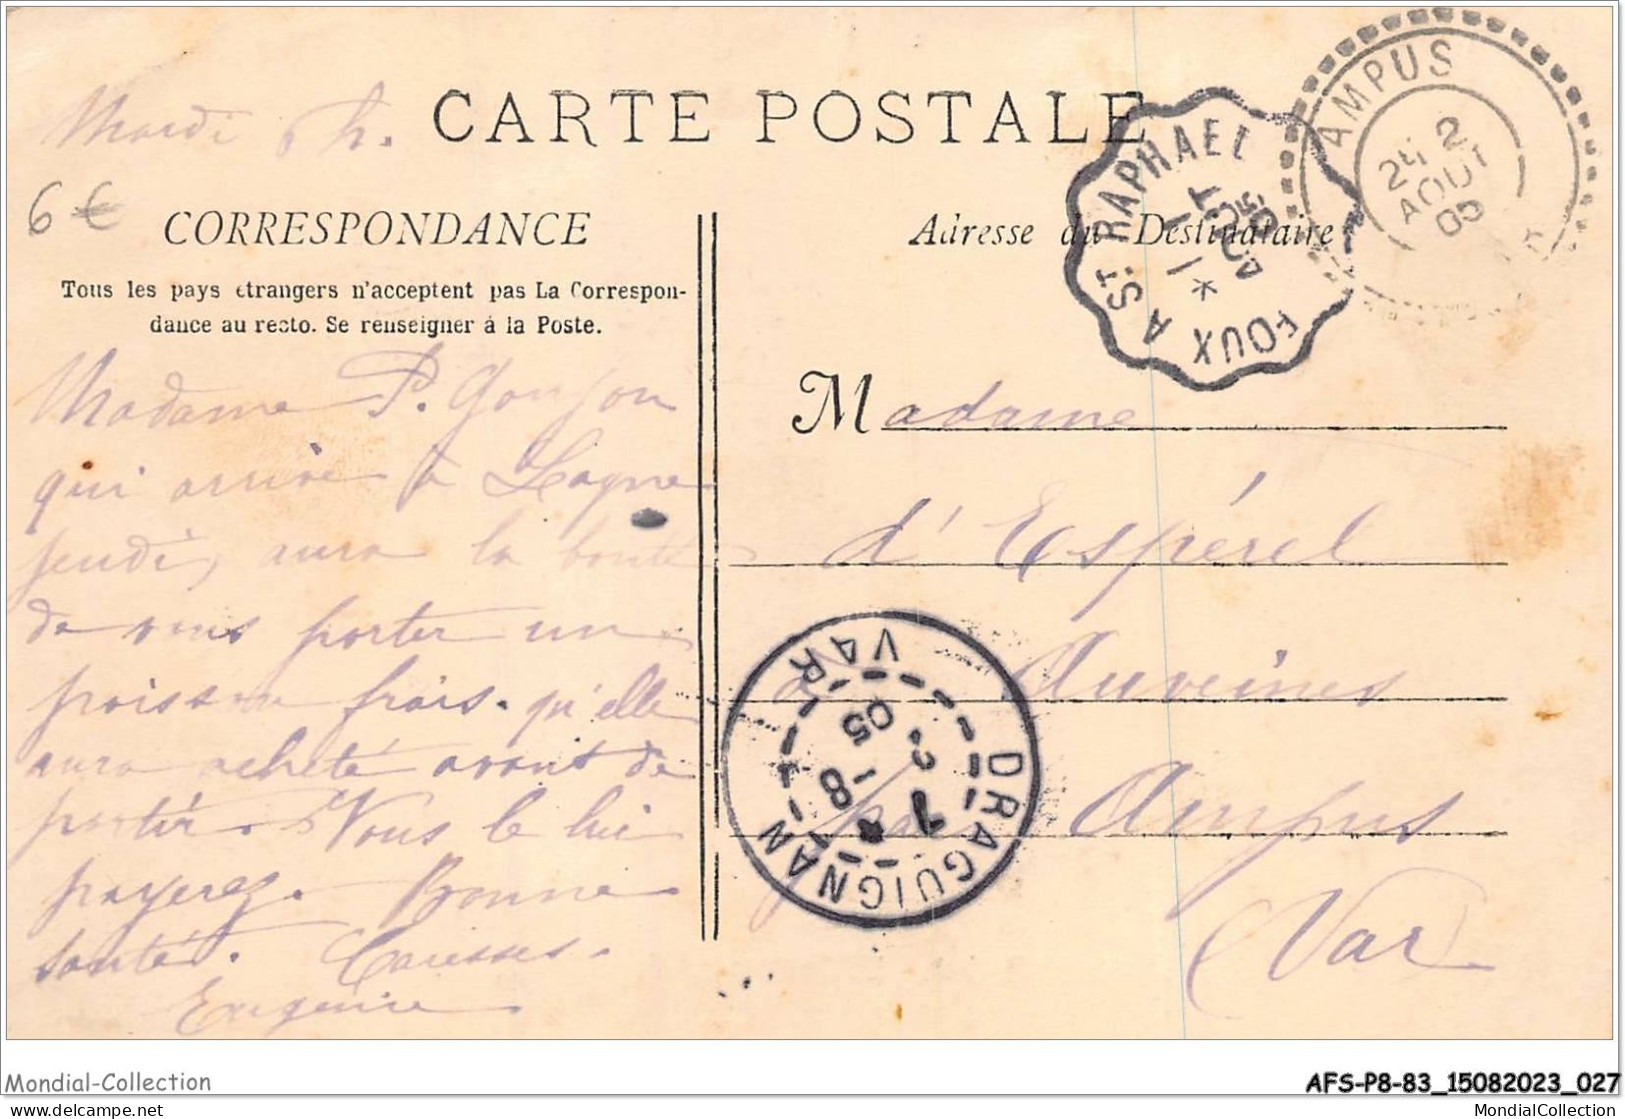 Mardi
CARTE POSTALE
6€
CORRESPONDANCE
Tous les pays étrangers n'acceptent pas La Correspon-
dance au recto. Se renseigner à la Poste.
Adresse du Destinataire
AMPUS
24
2
AOUT
05
ST RAPHAEL
1
AOUT
05
FOUX A
Madame P. Goujon
qui arrive à Lagne
jeudi, aura la bonté
de vous porter un
poisson frais. qu'elle
aura acheté avant de
partir. Vous le lui
payerez. Bonne
santé. Caresses.
Eugénie
Madame
d'Espérel
Auveines
par Ampus
(Var)
DRAGUIGNAN
VAR
2
8
05
Mondial-Collection
AFS-P8-83_15082023_027
delcampe.net
MondialCollection